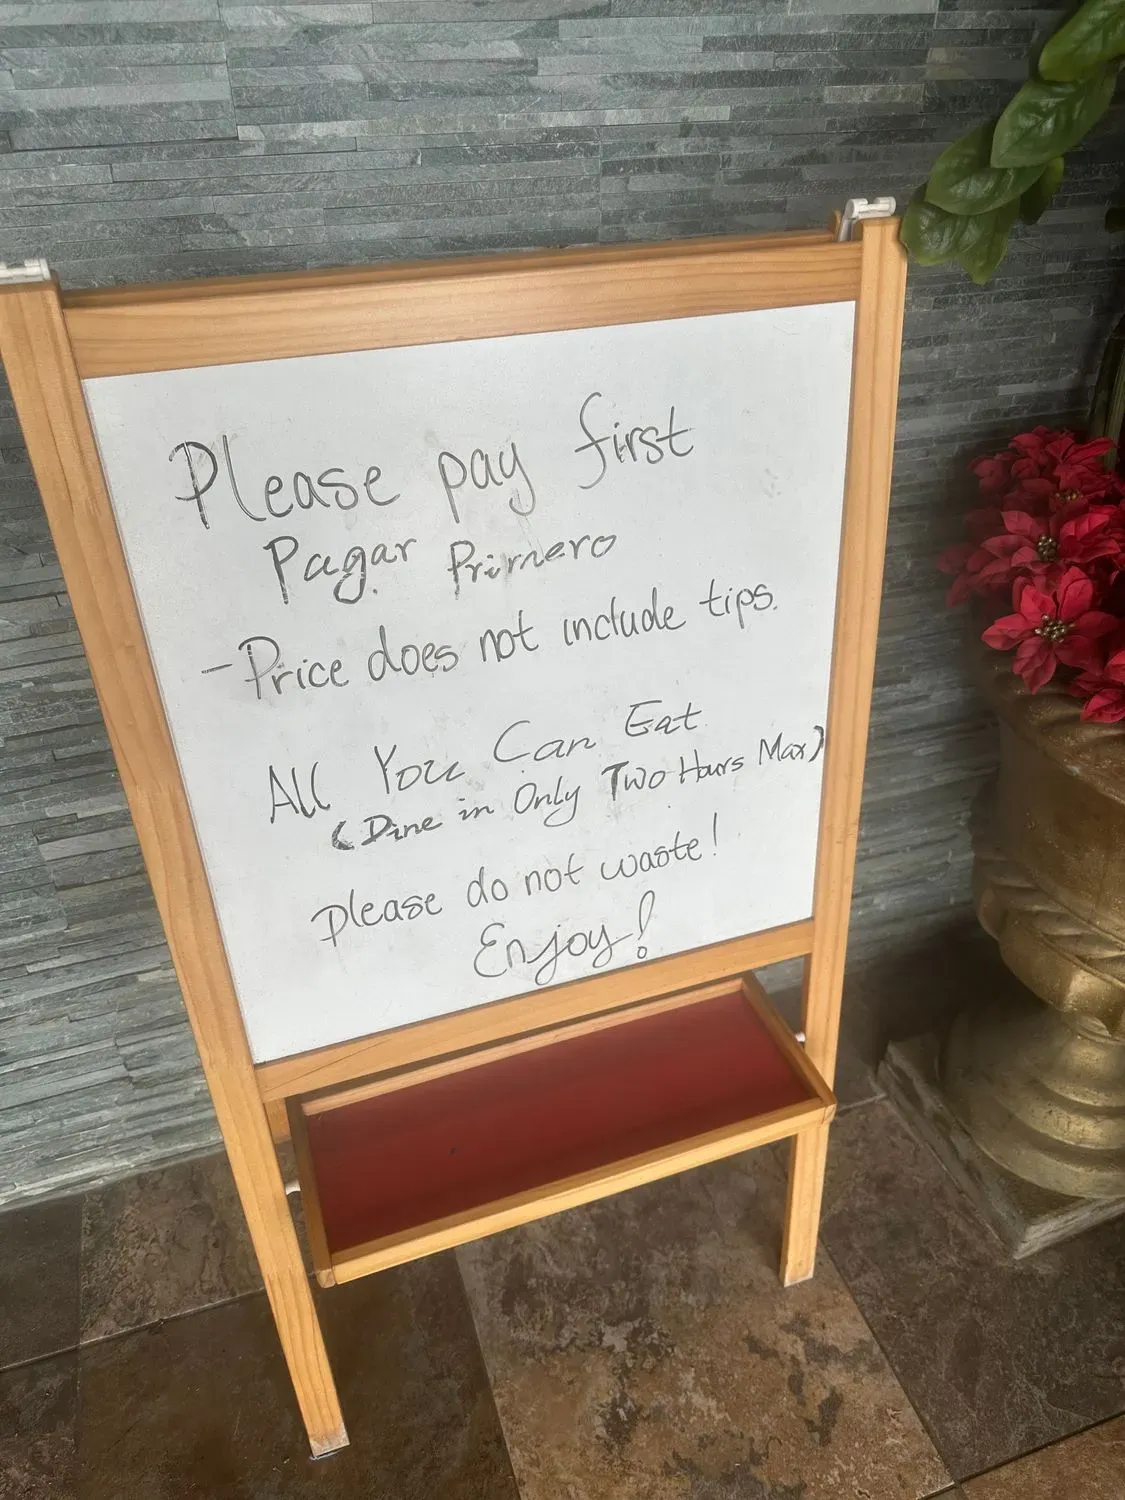 Please pay first
Pagar Primero
-Price does not include tips.
All You Can Eat
(Dine in Only Two Hours Max)
please do not waste!
Enjoy!